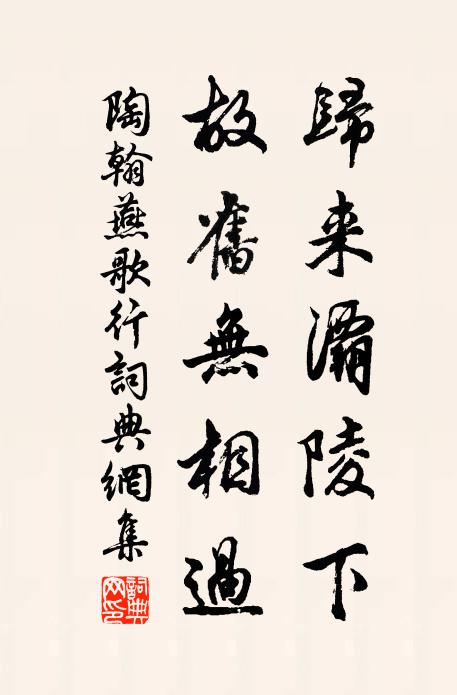 歸来灞陵下
故舊無相過
陶翰燕歌行詞典網集
詞典
网印